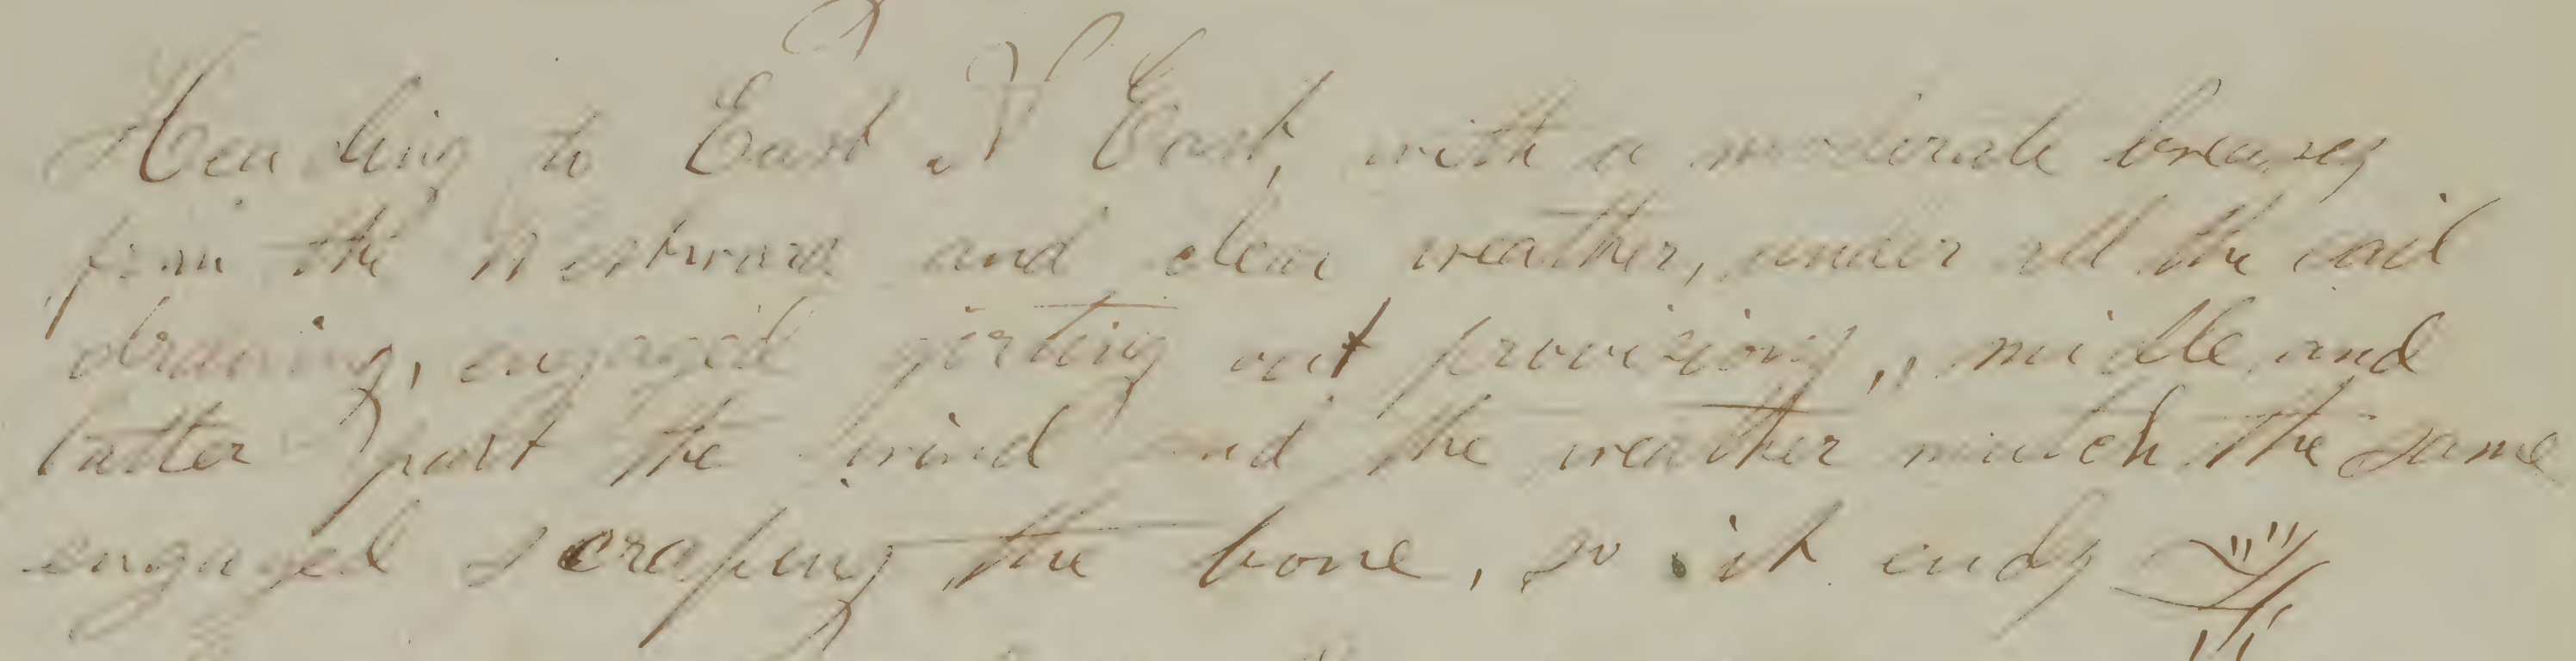 Heading to East N East, with a moderate breazes
from the Nortward and clear weather, under all the sail
drawing, engaged getting out provisions, midle and
latter part the wind and the weather mutch the same
engaged scraping the bone, so it ends